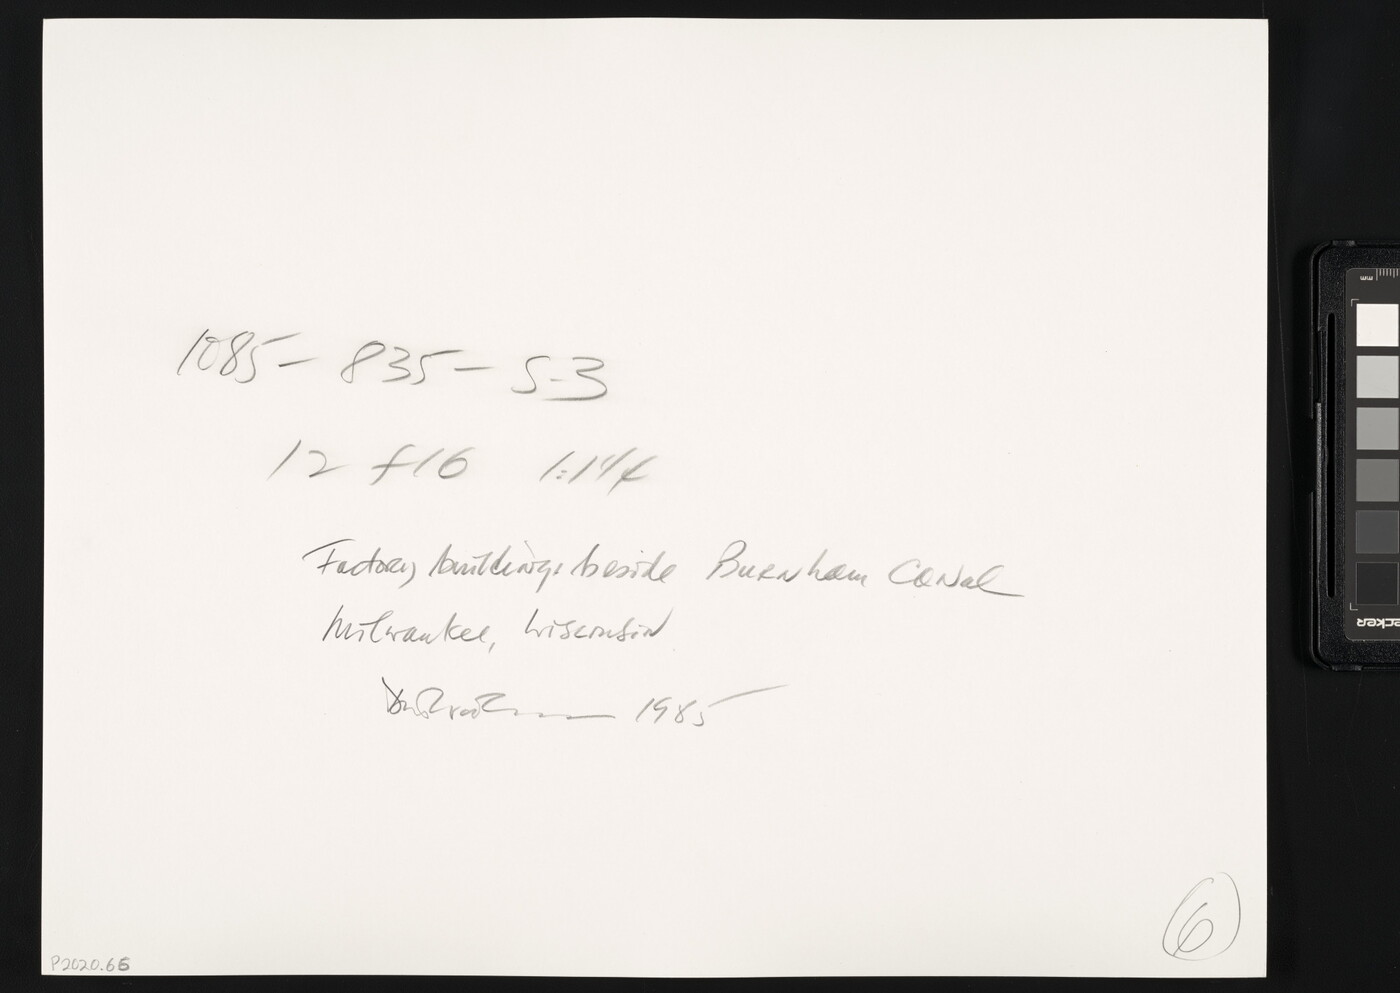 1085 - 835 - S-3
12 f16 1:14
Factory buildings beside Burnham Canal
Milwaukee, Wisconsin
1985
6
P2020.66
mm